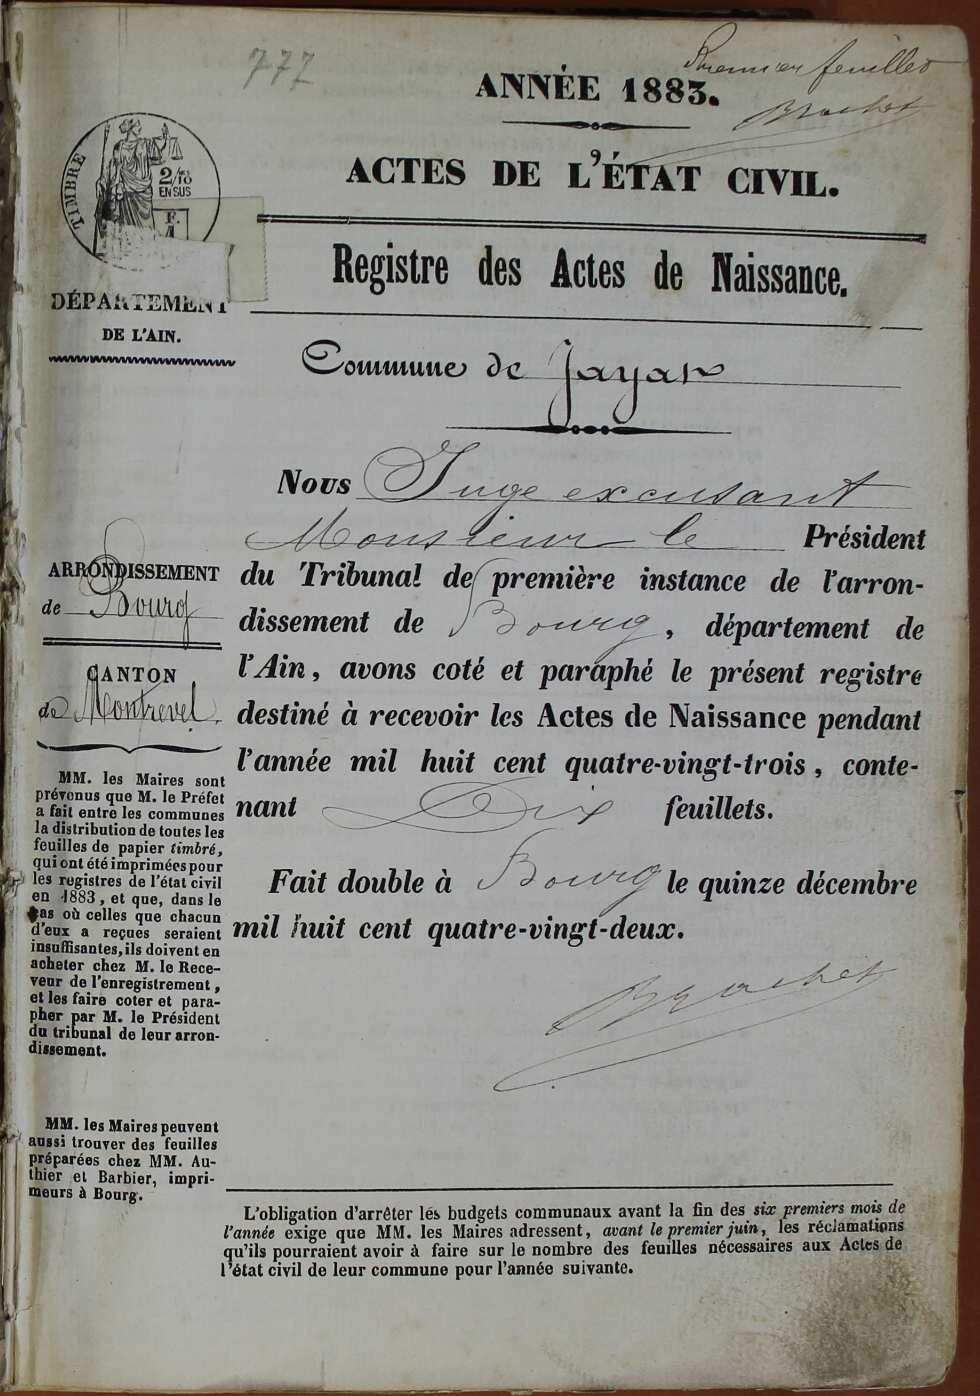 777
Premier feuillet
Brochet
ANNÉE 1883.
ACTES DE L'ÉTAT CIVIL.
TIMBRE
2/10
EN SUS
F.
Registre des Actes de Naissance.
DÉPARTEMENT
DE L'AIN.
Commune de Jayat
Nous Juge excusant
Monsieur le Président
du Tribunal de première instance de l'arron-
dissement de Bourg, département de
l'Ain, avons coté et paraphé le présent registre
destiné à recevoir les Actes de Naissance pendant
l'année mil huit cent quatre-vingt-trois, conte-
nant Dix feuillets.
Fait double à Bourg le quinze décembre
mil huit cent quatre-vingt-deux.
Brochet
ARRONDISSEMENT
de Bourg
CANTON
de Montrevel.
MM. les Maires sont
prévenus que M. le Préfet
a fait entre les communes
la distribution de toutes les
feuilles de papier timbré,
qui ont été imprimées pour
les registres de l'état civil
en 1883, et que, dans le
cas où celles que chacun
d'eux a reçues seraient
insuffisantes, ils doivent en
acheter chez M. le Rece-
veur de l'enregistrement,
et les faire coter et para-
pher par M. le Président
du tribunal de leur arron-
dissement.
MM. les Maires peuvent
aussi trouver des feuilles
préparées chez MM. Au-
thier et Barbier, impri-
meurs à Bourg.
L'obligation d'arrêter les budgets communaux avant la fin des six premiers mois de
l'année exige que MM. les Maires adressent, avant le premier juin, les réclamations
qu'ils pourraient avoir à faire sur le nombre des feuilles nécessaires aux Actes de
l'état civil de leur commune pour l'année suivante.